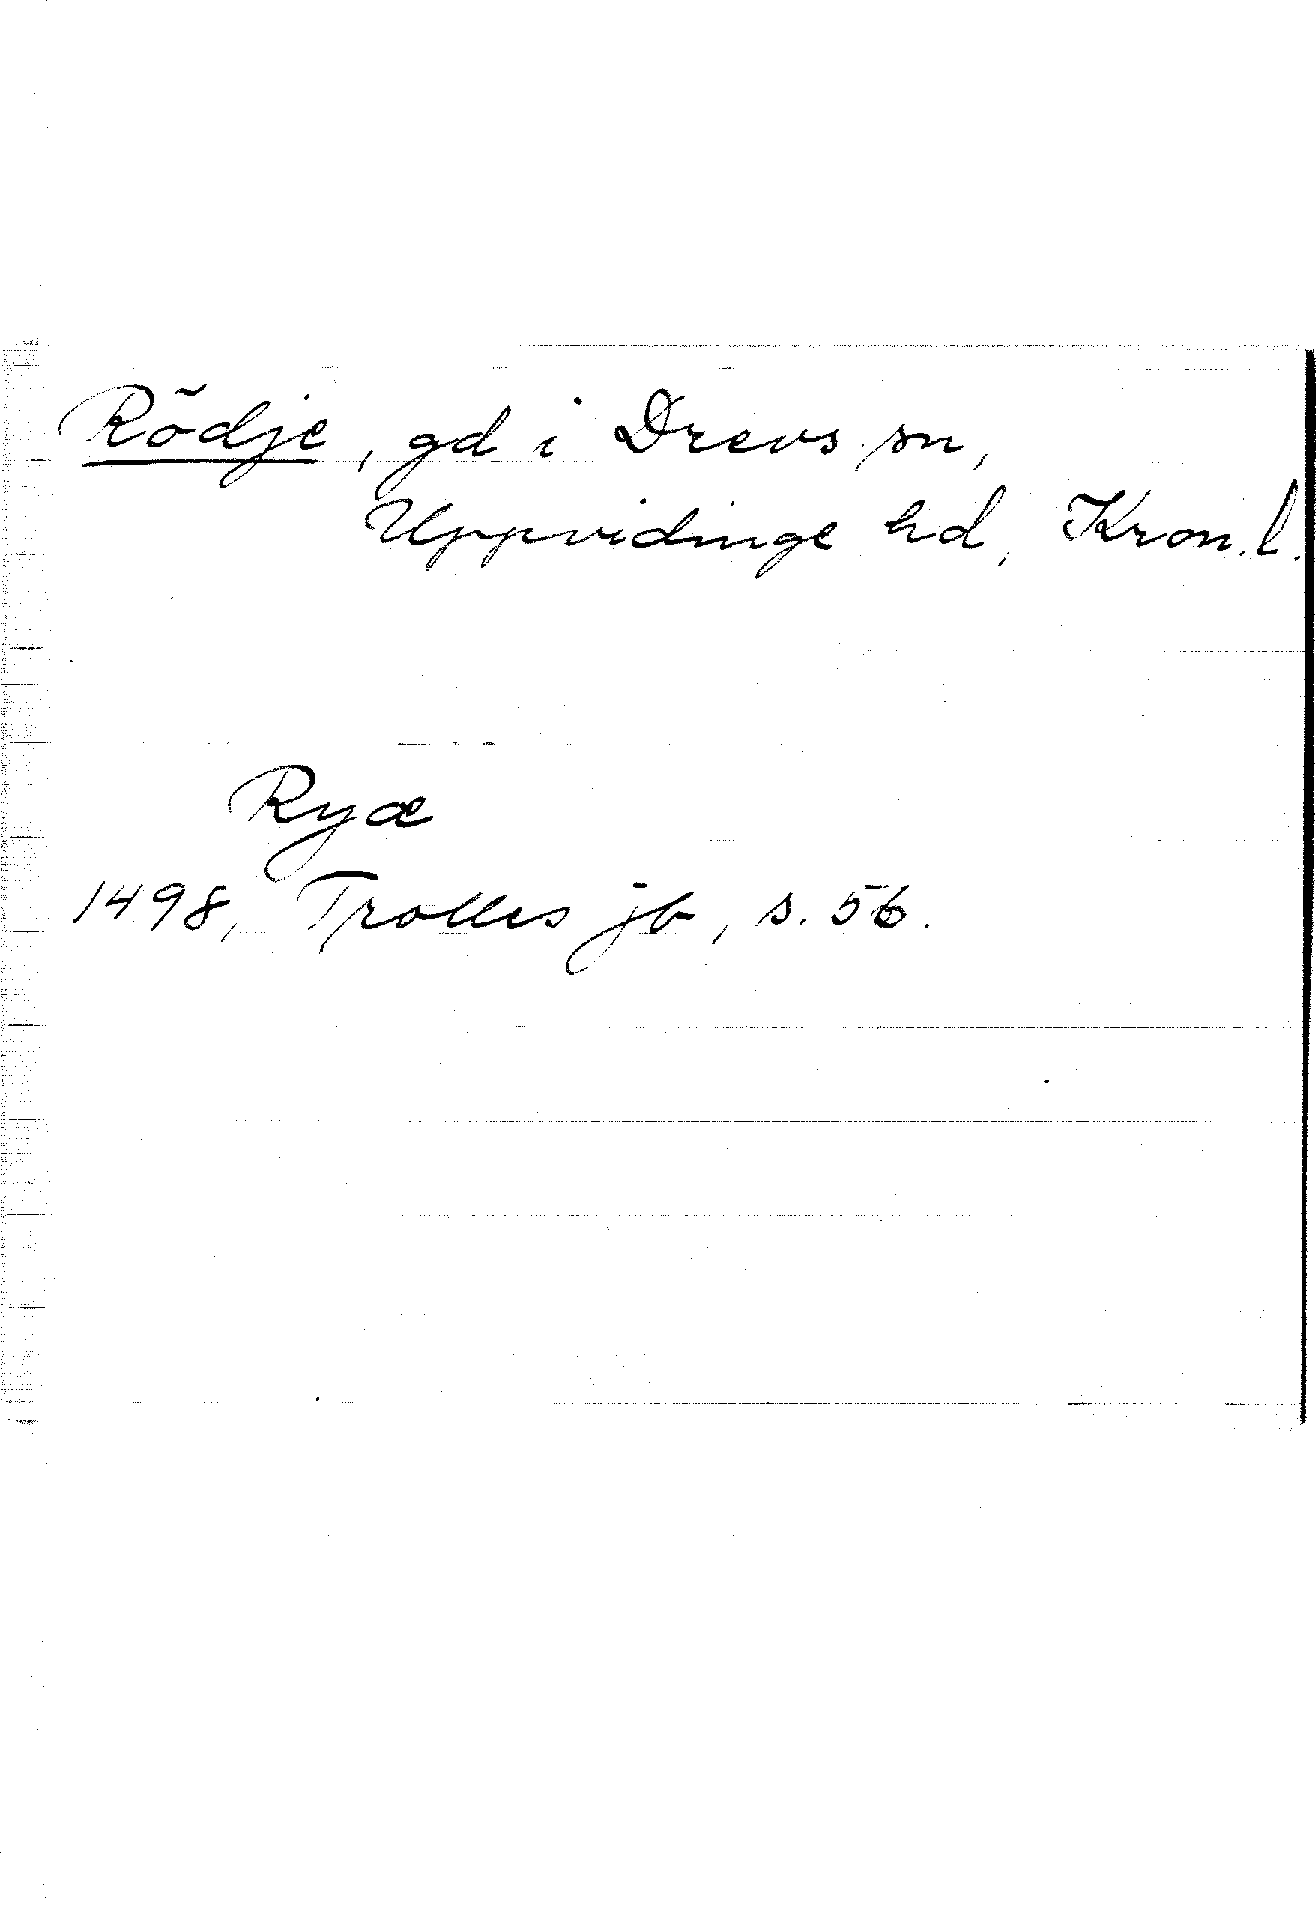 Rödje, gd i Drevs sn,
Uppvidinge hd, Kron. l.
Ryæ
1498, Trolles jb, s. 56.